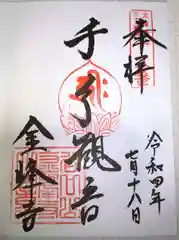 奉拝
令和四年
七月十八日
千手観音
金峰寺